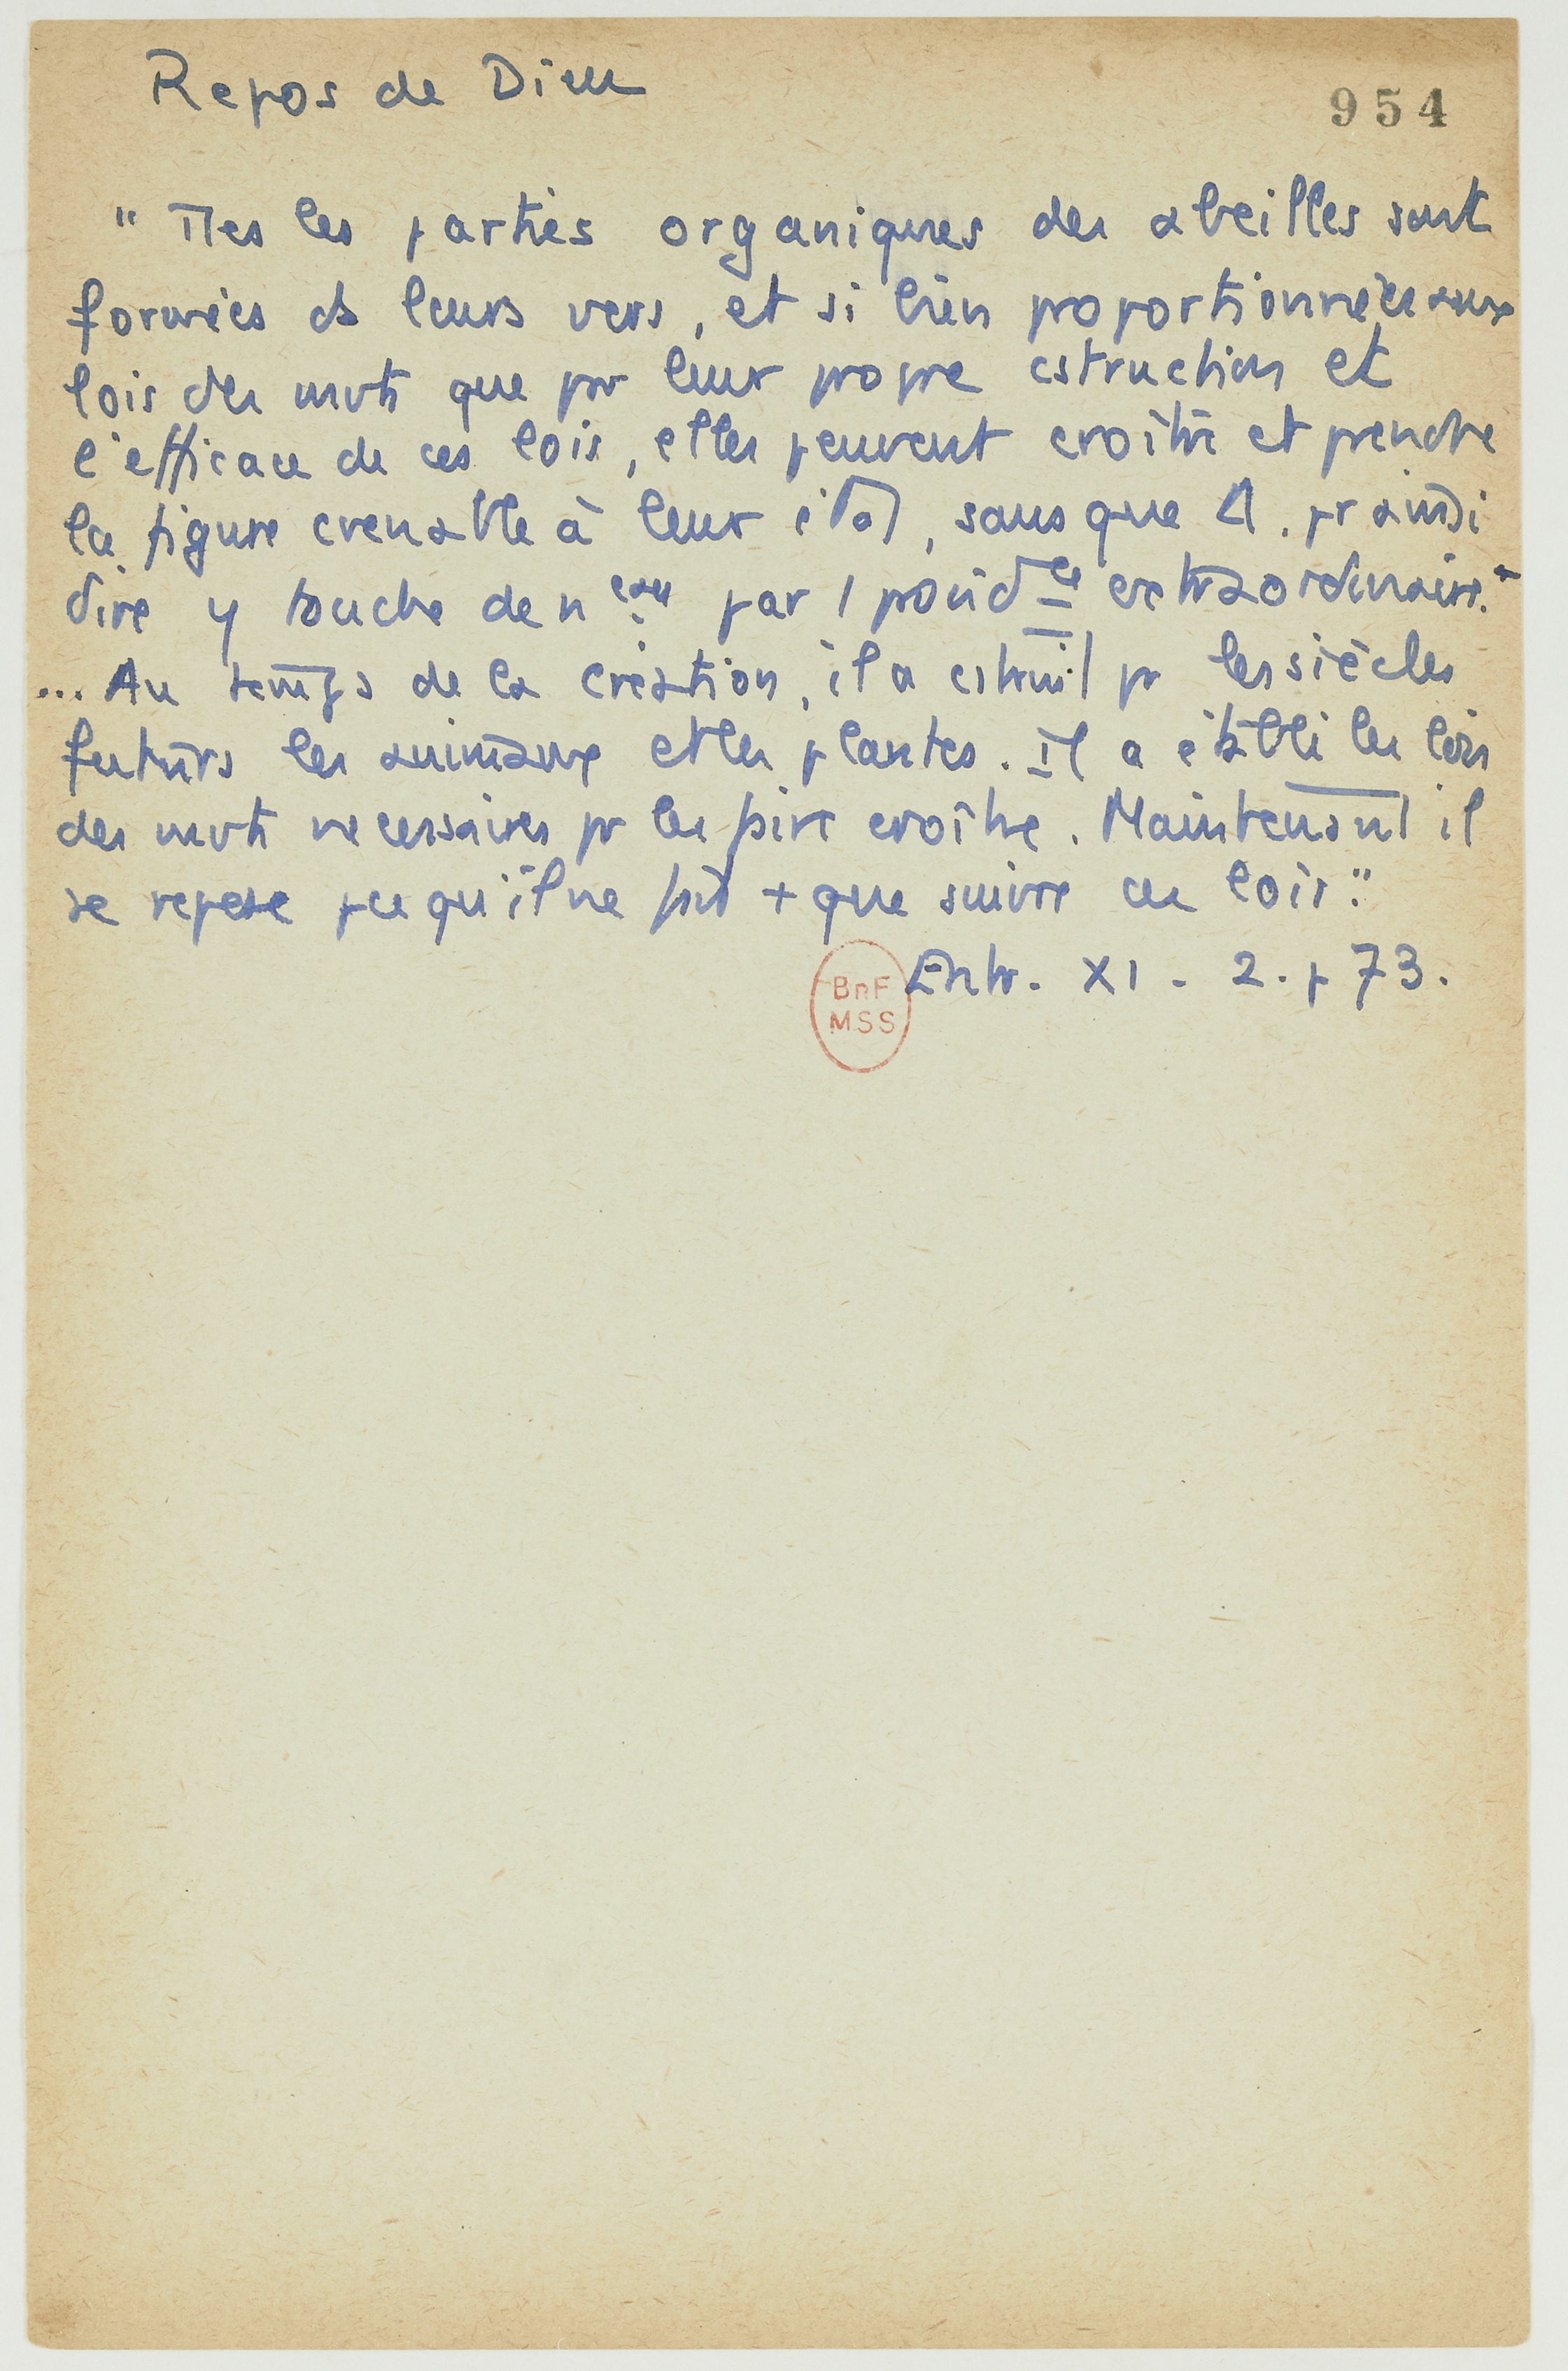 Repos de Dieu
954
" Ttes les parties organiques des abeilles sont
formées ds leurs vers, et si bien proportionnées aux
lois des mvts que pr leur propre cstruction et
l'efficace de ces lois, elles peuvent croître et prendre
la figure cvenable à leur état, sans que Δ. pr ainsi
dire y touche de nveau par 1 provid ce extraordinaire."
... Au temps de la création, il a cstruit pr les siècles
futurs les animaux et les plantes. Il a établi les lois
des mvts necessaires pr les faire croître. Maintenant il
se repose pce qu'il ne fait + que suivre ces lois."
Entr. XI - 2. p 73.
BnF
MSS